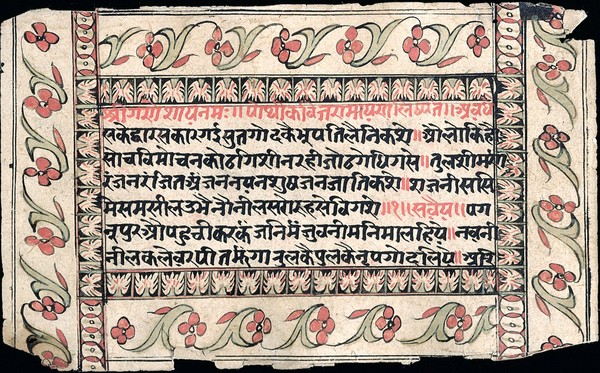 श्रीगणेशायनमः॥ पोथीकवित्तरामायणलिष्यते॥ अवधे
सकेद्वारसकारगईसुतगोदकैभूपतिलैनिकशे॥ औलोकिहौ
सोचविमोचनकोठगिशीनरहीजोठगेधिगसे॥ तुलशीमन
रंजनरंजितअंजननयनशुषंजनजातिकशे॥ शजनीससि
मैसमसीलउभैनौनीलसरोरुहसेविगशे॥१॥ सवैया॥ पग
नूपुरऔपहुचीकरकंजनिमंजुवनीमनिमालहिए॥ नवनी
नीलकलेवरपीतझंगाझलकैपुलकैनृपगोदलिए॥ अरवि